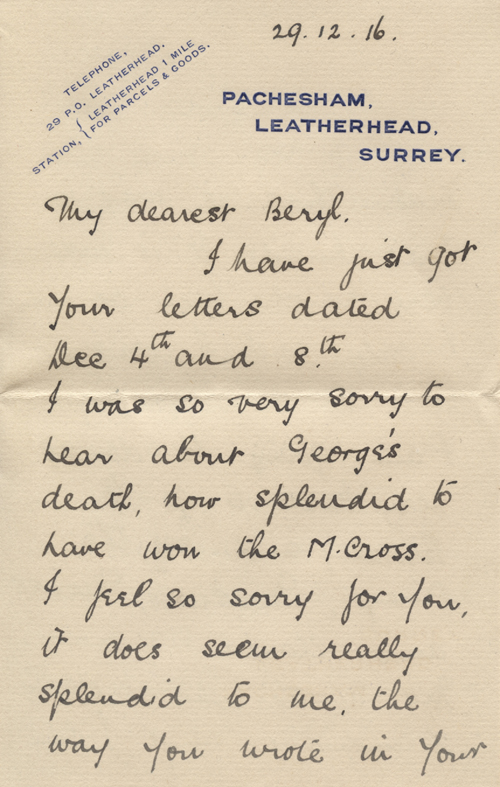 29.12.16.
TELEPHONE,
29 P.O. LEATHERHEAD.
STATION, { LEATHERHEAD 1 MILE
FOR PARCELS & GOODS.
PACHESHAM,
LEATHERHEAD,
SURREY.
My dearest Beryl.
I have just got
your letters dated
Dec 4th and 8.th
I was so very sorry to
hear about George's
death, how splendid to
have won the M.Cross.
I feel so sorry for you,
it does seem really
splendid to me, the
way you wrote in your